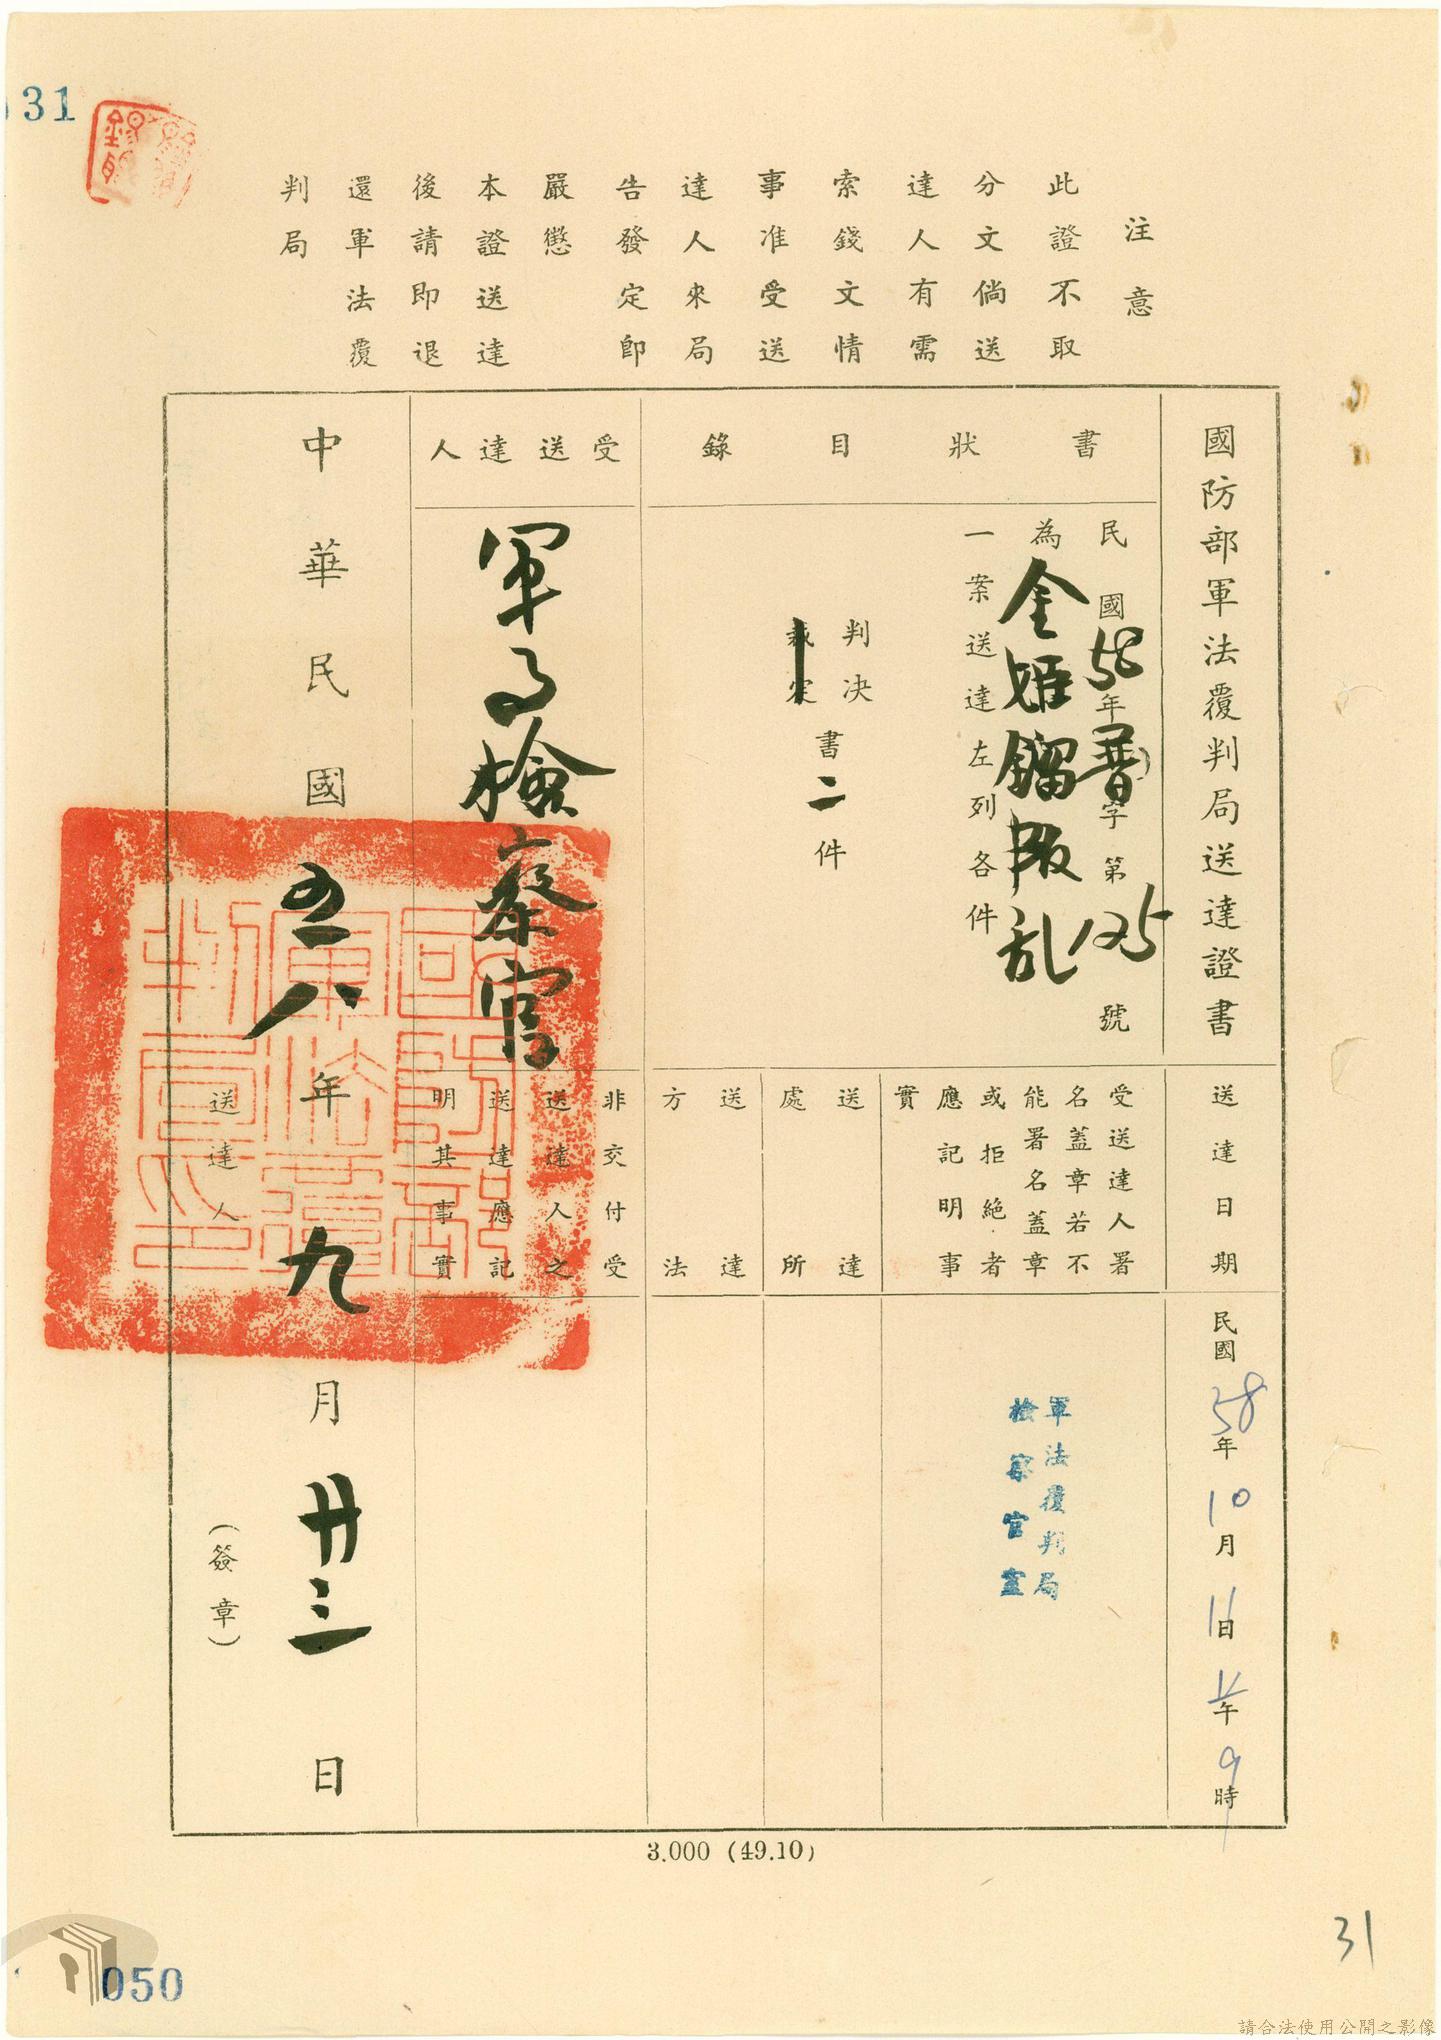 31
注意
此證不取
分文倘送
達人有需
索錢文情
事准受送
達人來局
告發定即
嚴懲
本證送達
後請即退
還軍法覆
判局
國防部軍法覆判局送達證書
書狀目錄
民國58年普字第125號
為金姬鎦叛乱
一案送達左列各件
判決
裁定
書二件
受送達人
軍事檢察官
送達日期
民國58年10月11日上午9時
受送達人署
名蓋章若不
能署名蓋章
或拒絕者
應記明事
實
軍法覆判局
檢察官室
送達
處所
送達
方法
非交付受
送達人之
送達應記
明其事實
國防部
軍法覆
判局印
中華民國五八年九月廿三日
送達人
(簽章)
3.000 (49.10)
31
050
請合法使用公開之影像